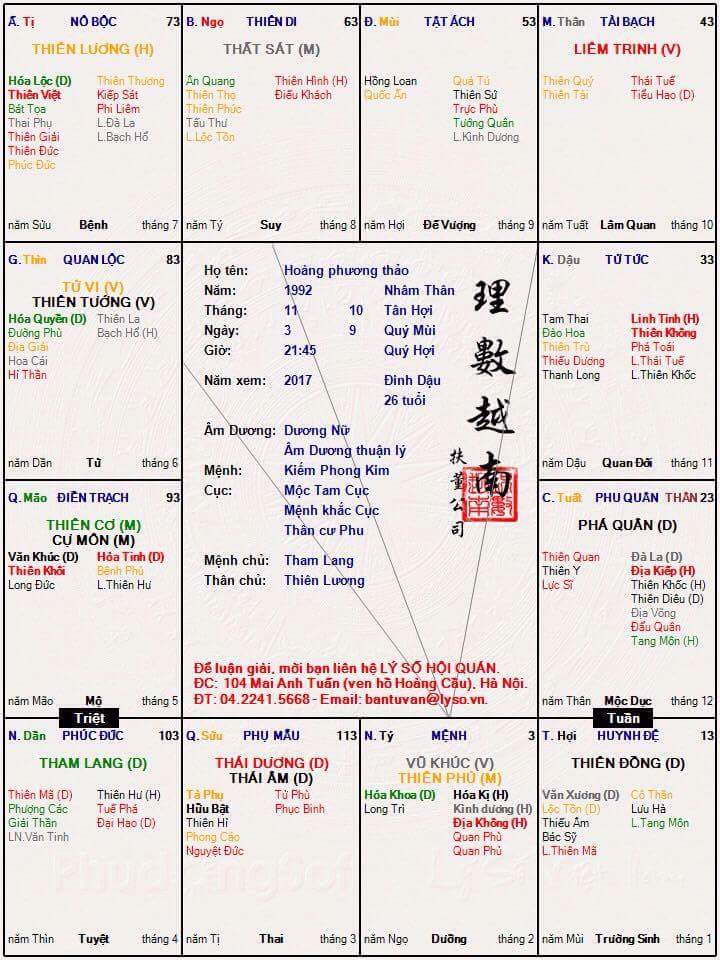 Ấ. Tị NÔ BỘC 73
THIÊN LƯƠNG (H)
Hóa Lộc (D) Thiên Thương
Thiên Việt Kiếp Sát
Bát Tọa Phi Liêm
Thai Phụ L.Đà La
Thiên Giải L.Bạch Hổ
Thiên Đức
Phúc Đức
năm Sửu Bệnh tháng 7
B. Ngọ THIÊN DI 63
THẤT SÁT (M)
Ân Quang Thiên Hình (H)
Thiên Thọ Điếu Khách
Thiên Phúc
Tấu Thư
L.Lộc Tồn
năm Tý Suy tháng 8
Đ. Mùi TẬT ÁCH 53
Hồng Loan Quả Tú
Quốc Ấn Thiên Sứ
Trực Phù
Tướng Quân
L.Kình Dương
năm Hợi Đế Vượng tháng 9
M. Thân TÀI BẠCH 43
LIÊM TRINH (V)
Thiên Quý Thái Tuế
Thiên Tài Tiểu Hao (D)
năm Tuất Lâm Quan tháng 10
G. Thìn QUAN LỘC 83
TỬ VI (V)
THIÊN TƯỚNG (V)
Hóa Quyền (D) Thiên La
Đường Phù Bạch Hổ (H)
Địa Giải
Hoa Cái
Hỉ Thần
năm Dần Tử tháng 6
Họ tên: Hoảng phương thảo
Năm: 1992 Nhâm Thân
Tháng: 11 10 Tân Hợi
Ngày: 3 9 Quý Mùi
Giờ: 21:45 Quý Hợi
Năm xem: 2017 Đinh Dậu
26 tuổi
Âm Dương: Dương Nữ
Âm Dương thuận lý
Mệnh: Kiếm Phong Kim
Cục: Mộc Tam Cục
Mệnh khắc Cục
Thân cư Phu
Mệnh chủ: Tham Lang
Thân chủ: Thiên Lương
理數越南
扶董公司
Để luận giải, mời bạn liên hệ LÝ SỐ HỘI QUÁN.
ĐC: 104 Mai Anh Tuấn (ven hồ Hoàng Cầu), Hà Nội.
ĐT: 04.2241.5668 - Email: bantuvan@lyso.vn.
K. Dậu TỬ TỨC 33
Tam Thai Linh Tinh (H)
Đào Hoa Thiên Không
Thiên Trù Phá Toái
Thiếu Dương L.Thái Tuế
Thanh Long L.Thiên Khốc
năm Dậu Quan Đới tháng 11
Q. Mão ĐIỀN TRẠCH 93
THIÊN CƠ (M)
CỰ MÔN (M)
Văn Khúc (D) Hỏa Tinh (D)
Thiên Khôi Bệnh Phù
Long Đức L.Thiên Hư
năm Mão Mộ tháng 5
Triệt
C. Tuất PHU QUÂN THÂN 23
PHÁ QUÂN (D)
Thiên Quan Đà La (D)
Thiên Y Địa Kiếp (H)
Lực Sĩ Thiên Khốc (H)
Thiên Diêu (D)
Địa Võng
Đẩu Quân
Tang Môn (H)
năm Thân Mộc Dục tháng 12
Tuần
N. Dần PHÚC ĐỨC 103
THAM LANG (D)
Thiên Mã (D) Thiên Hư (H)
Phượng Các Tuế Phá
Giải Thần Đại Hao (D)
LN.Văn Tinh
năm Thìn Tuyệt tháng 4
Q. Sửu PHỤ MẪU 113
THÁI DƯƠNG (D)
THÁI ÂM (D)
Tả Phụ Tử Phù
Hữu Bật Phục Binh
Thiên Hỉ
Phong Cáo
Nguyệt Đức
năm Tị Thai tháng 3
N. Tý MỆNH 3
VŨ KHÚC (V)
THIÊN PHỦ (M)
Hóa Khoa (D) Hóa Kị (H)
Long Trì Kình dương (H)
Địa Không (H)
Quan Phù
Quan Phủ
năm Ngọ Dưỡng tháng 2
T. Hợi HUYNH ĐỆ 13
THIÊN ĐỒNG (D)
Văn Xương (D) Cô Thần
Lộc Tồn (D) Lưu Hà
Thiếu Âm L.Tang Môn
Bác Sỹ
L.Thiên Mã
năm Mùi Trường Sinh tháng 1